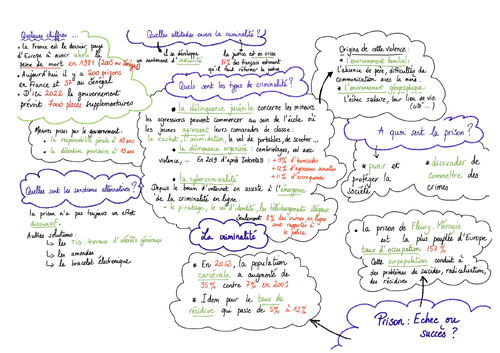 Quelques chiffres ...
• La France est le dernier pays
d'Europe à avoir aboli la
peine de mort en 1981
• Aujourd'hui il y a 200 prisons
en France et 37 au Sénégal
• D'ici 2022 le gouvernement
prévoit 7000 places supplémentaires
Mesures prises par le gouvernement :
• la responsabilité pénale à
• la détention provisoire à
Quelles sont les sanctions alternatives ?
la prison n'a pas toujours un effet
dissuasif
Autres solutions :
↳ les TIG : travaux d'intérêts généraux
↳ les amendes
↳ le bracelet électronique
Quelles attitudes envers la criminalité ?
il se développe
un sentiment d'insécurité
la justice est en crise
des français estiment
qu'il faut réformer la justice
Quels sont les types de criminalité ?
• la délinquance juvénile concerne les mineurs.
les agressions peuvent commencer au sein de l'école où
les jeunes agressent leurs camarades de classe :
le racket, l'intimidation, le vol de portables, le scooter ...
• la délinquance organisée : cambriolages, vol avec
violence, ... En 2019 d'après
+ 9% d'homicides
+ 12% d'agressions sexuelles
+ 11% d'escroqueries
• la cybercriminalité
Depuis le boum d'internet on assiste à l'émergence
de la criminalité en ligne :
le piratage, le vol d'identité, les téléchargements illégaux
seulement 8% des crimes en ligne
sont rapportés à
la police
La criminalité
* En 2012, la population
carcérale a augmenté de
35% contre 7% en 2001
* Idem pour le taux de
récidive qui passe de 5% à 12%
Origine de cette violence :
• l'environnement familial :
l'absence de père, difficultés de
communication avec la mère
• l'environnement géographique :
l'échec scolaire, leur lieu de vie
(cité ...)
A quoi sert la prison ?
* punir et
protéger la
société
* dissuader de
commettre des
crimes
• la prison de Fleury-Mérogis
est la plus peuplée d'Europe
taux d'occupation 157%
Cette surpopulation conduit à
des problèmes de suicides, radicalisation,
des récidives
Prison : Echec ou
succès ?